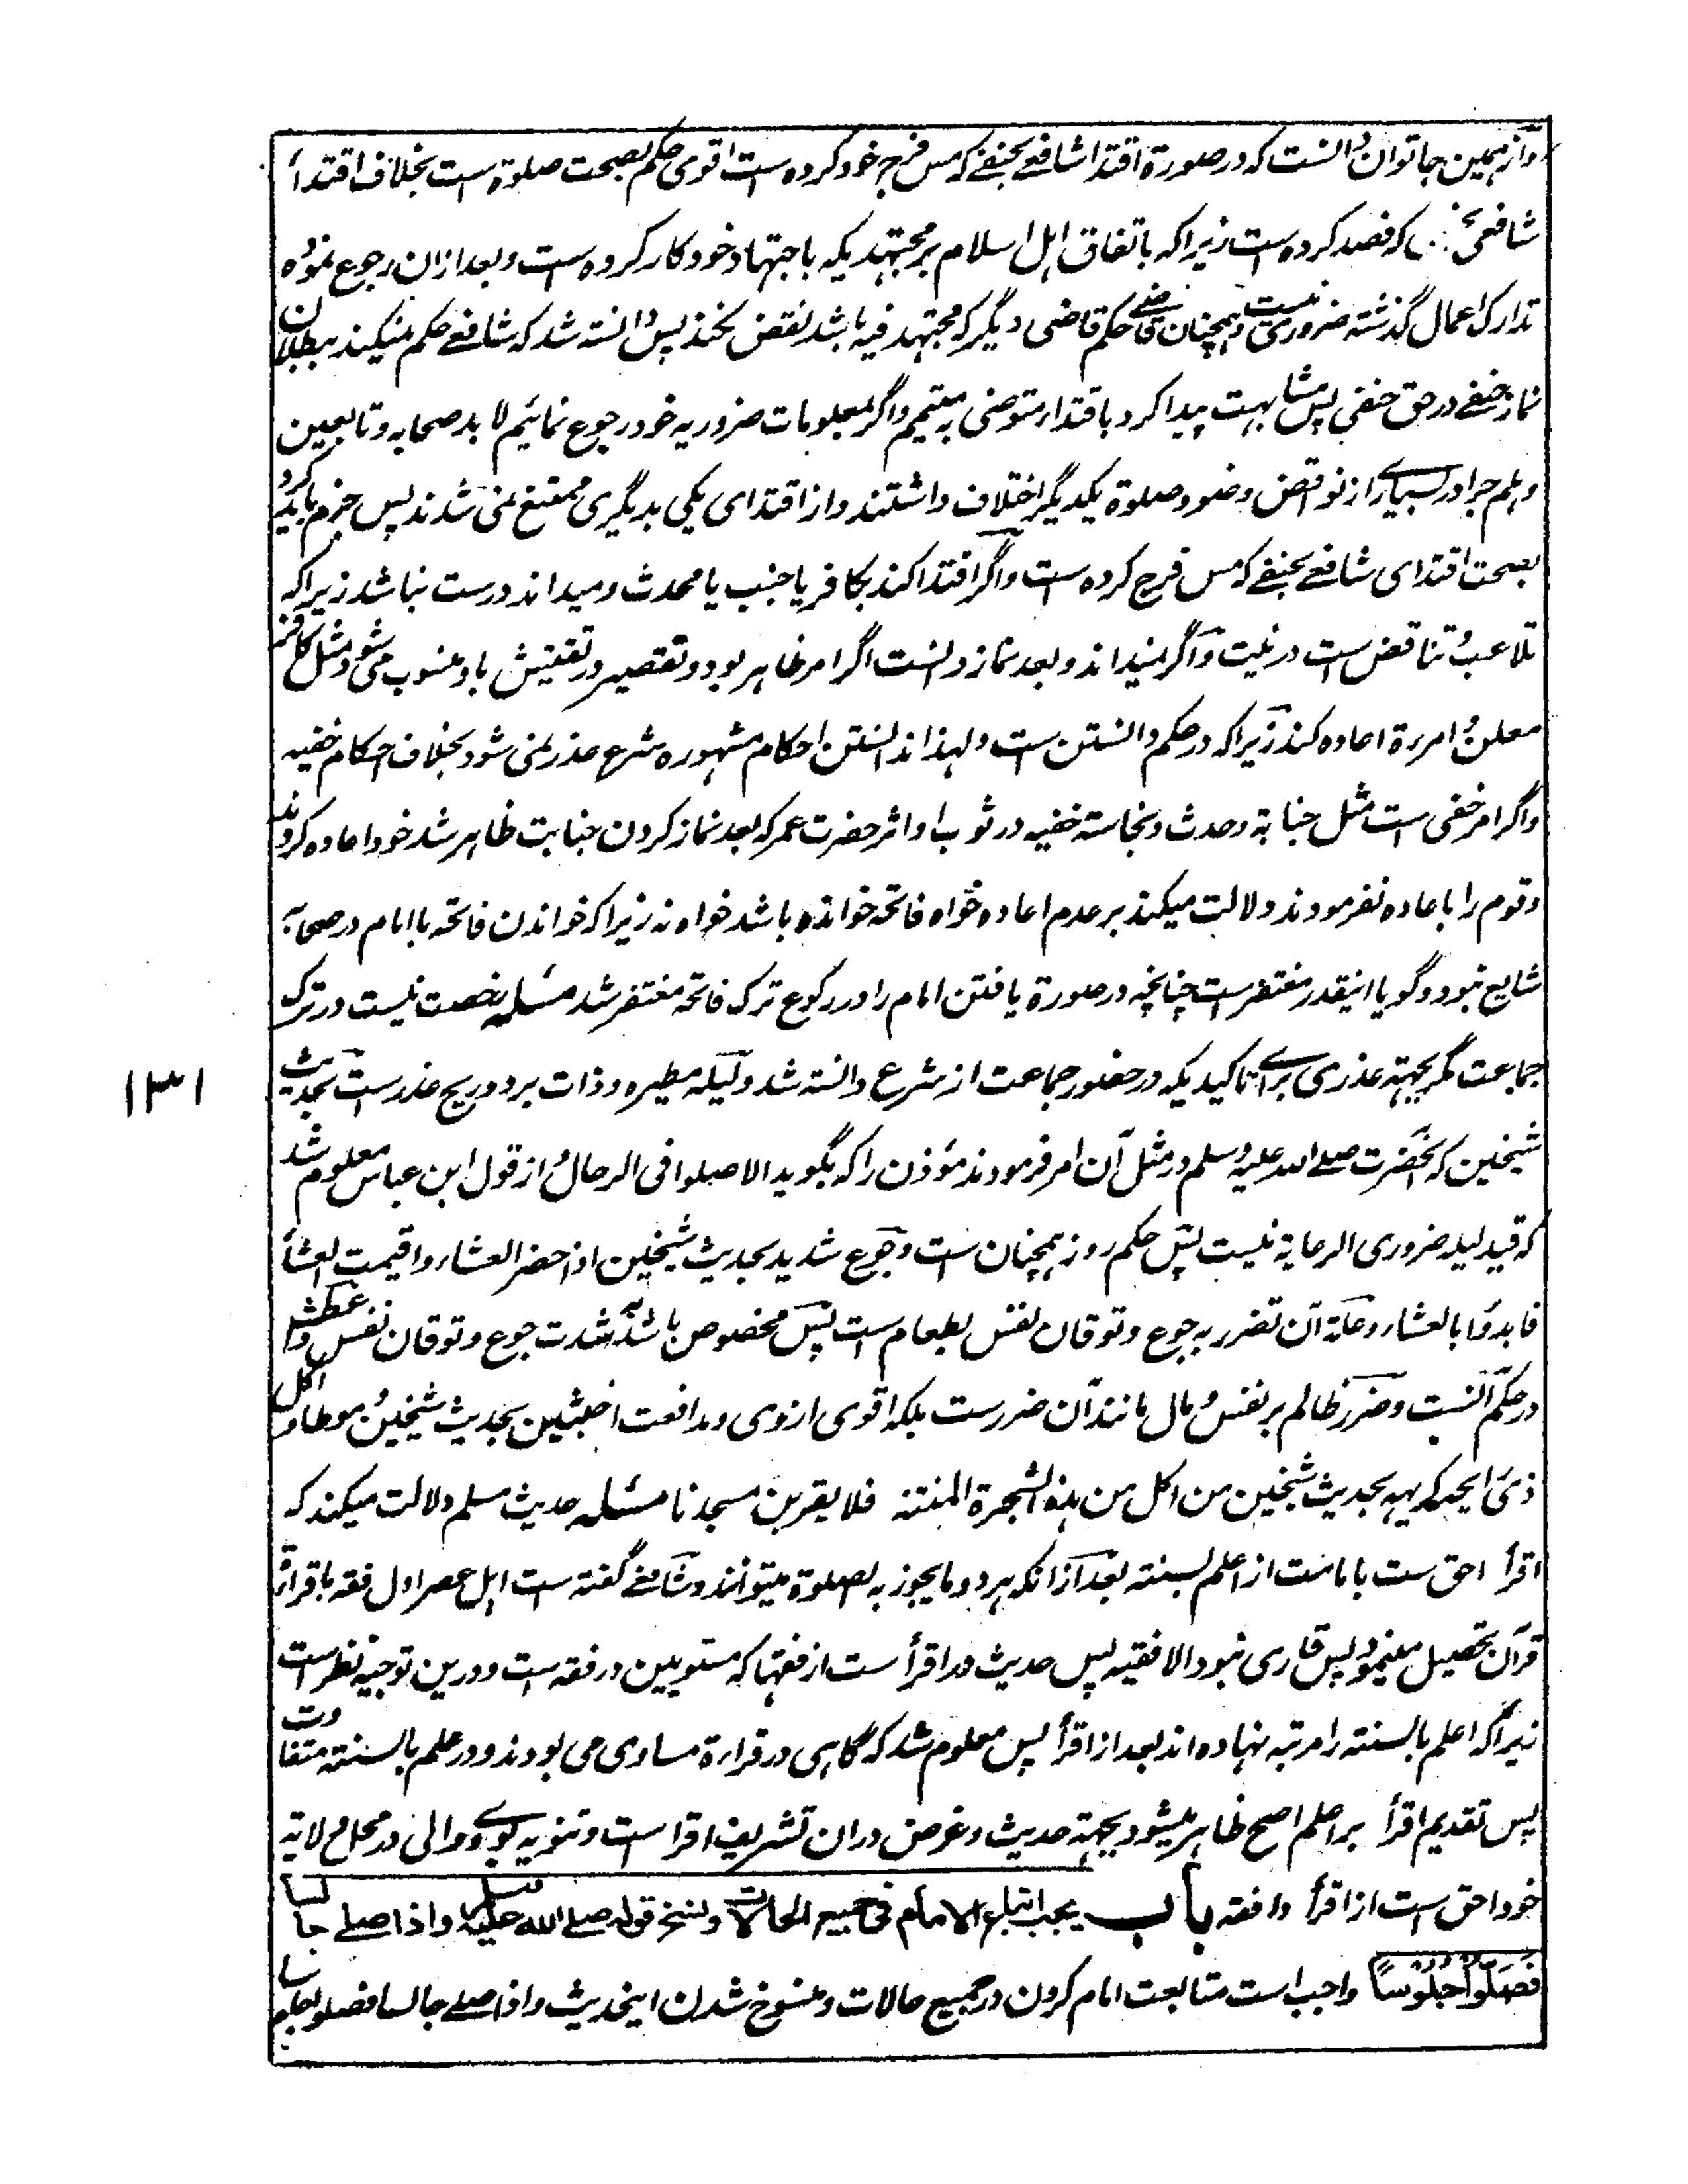 و از همین جا توان دانست که در صورة اقتدا شافعے بحنفے که مس فرج خود کرده است اقوی حکم بصحت صلوة است بخلاف اقتدأ
شافعی که فصد کرده است زیراکه باتفاق اہل اسلام بر مجتہدیکه باجتہاد خود کار کرده است و بعد ازان رجوع نموده
تدارک اعمال گذشته ضروری نیست و ہمچنان قاضے حکم قاضی دیگر که مجتہد فیه باشد نقض نکند پس دانسته شد که شافعے حکم نمیکند ببطلان
نماز حنفے در حق حنفی پس مشابہت پیدا کرد باقتدار متوضی به متیمم و اگر بمعلومات ضروریه خود رجوع نمائیم لابد صحابه و تابعین
و ہلم جرا در بسیارے از نواقض وضو و صلوة یکدیگر اختلاف داشتند و از اقتدای یکی بدیگری ممتنع نمی شدند پس جزم باید کرد
بصحت اقتدای شافعے بحنفے که مس فرج کرده است و اگر اقتدا کند بکافر یا جنب یا محدث و میداند درست نباشد زیراکه
تلاعب و تناقض است در نیت و اگر نمیداند و بعد نماز دانست اگر امر ظاہر بود و تقصیر در تفتیش باو منسوب می شود مثل کافر
معلن و امرءة اعاده کند زیراکه در حکم دانستن است و لہذا ندانستن احکام مشہوره شرع عذر نمی شود بخلاف احکام خفیه
و اگر امر خفی است مثل جنابة و حدث و نجاسته خفیه در ثوب او اثر حضرت عمر که بعد نماز کردن جنابت ظاہر شد خود اعاده کردند
و قوم را باعاده نفرمودند دلالت میکند بر عدم اعاده خواه فاتحه خوانده باشد خواه نه زیراکه خواندن فاتحه با امام در صحابه
شایع نبود و گویا اینقدر مغتفر است چنانچه در صورة یافتن امام را در رکوع ترک فاتحه مغتفر شد مسئله رخصت نیست در ترک
جماعت مگر بجہتہ عذری براے تاکیدیکه در حضور جماعت از شرع دانسته شد و لیله مطیره و ذات برد و ریح عذر است بحدیث
شیخین که آنحضرت صلے الله علیه وسلم در مثل آن امر فرمودند مؤذن را که بگوید الا صلوا فی الرحال و از قول ابن عباس معلوم شد
که قید لیله ضروری الرعایة نیست پس حکم روز ہمچنان است و جوع شدید بحدیث شیخین اذا حضر العشاء و اقیمت العشأ
فابدؤا بالعشاء و علة آن تضرر به جوع و توقان نفس بطعام است پس مخصوص باشد بشدت جوع و توقان نفس و عطش
در حکم آنست و ضرر ظالم بر نفس و مال مانند آن ضررست بلکه اقوی ازوی و مدافعت اخبثین بحدیث شیخین و موطا و اکل
ذی رایحه کریہه بحدیث شیخین من اکل من ہذه الشجرة المنتنه فلا یقربن مسجدنا مسئله حدیث مسلم دلالت میکند که
اقرأ احق ست بامامت از اعلم بسنته بعد ازانکه ہر دو ما یجوز به الصلوة میتوانند و شافعے گفته ست اہل عصر اول فقه باقرائة
قرآن تحصیل مینمود پس قاری نبود الا فقیه پس حدیث در اقرأ ست از فقہا که مستویین در فقه ست و درین توجیه نظر است
زیراکه اعلم بالسنته را مرتبه نہاده اند بعد از اقرأ پس معلوم شد که گاہی در قراءة مساوی می بودند و در علم بالسنته متفاوت
پس تقدیم اقرأ بر اعلم اصح ظاہر میشود بجہتہ حدیث و غرض دران تشریف اقرا است و تنویه و والی در محل ولایة
خود احق است از اقرأ و افقه باب یجب اتباع الامام فی جمیع الحالات و نسخ قوله صلے الله علیه وسلم و اذا صلے جالسا
فَصَلُّوا جُلُوْسًا واجب است متابعت امام کردن در جمیع حالات و منسوخ شدن اینحدیث و اذا صلے جالسا فصلوا جلوسا
۱۳۱